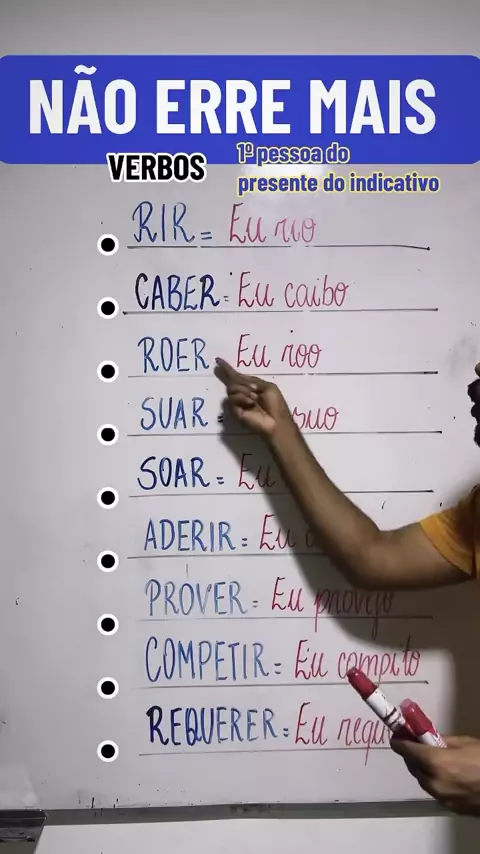 NÃO ERRE MAIS
VERBOS
1º pessoa do
presente do indicativo
RIR = Eu rio
CABER = Eu caibo
ROER Eu roo
SUAR = suo
SOAR = Eu
ADERIR = Eu
PROVER = Eu provejo
COMPETIR = Eu compito
REQUERER = Eu